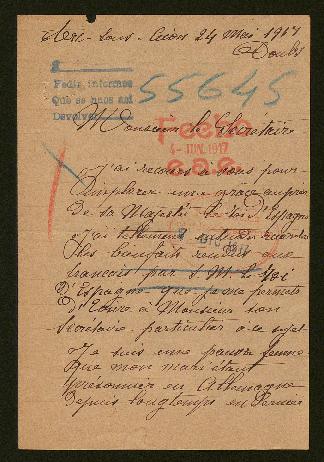 sous 24 Mai 1917
Doubs
Pedir informes
Que se haga así
Devolver
55645
Fecho
4-JUN.1917
Monsieur le Secrétaire
J'ai recours à vous pour
implorer une grâce auprès
de sa Majesté le roi d'Espagne
J'ai tellement entendu
les bienfaits rendus aux
francais par S. M. le Roi
d'Espagne que je me permets
d'Ecrire à Monsieur son
Secretaire particulier à ce sujet
Je suis une pauvre femme
que mon mari étant
prisonnier en Allemagne
depuis longtemps en Dernier